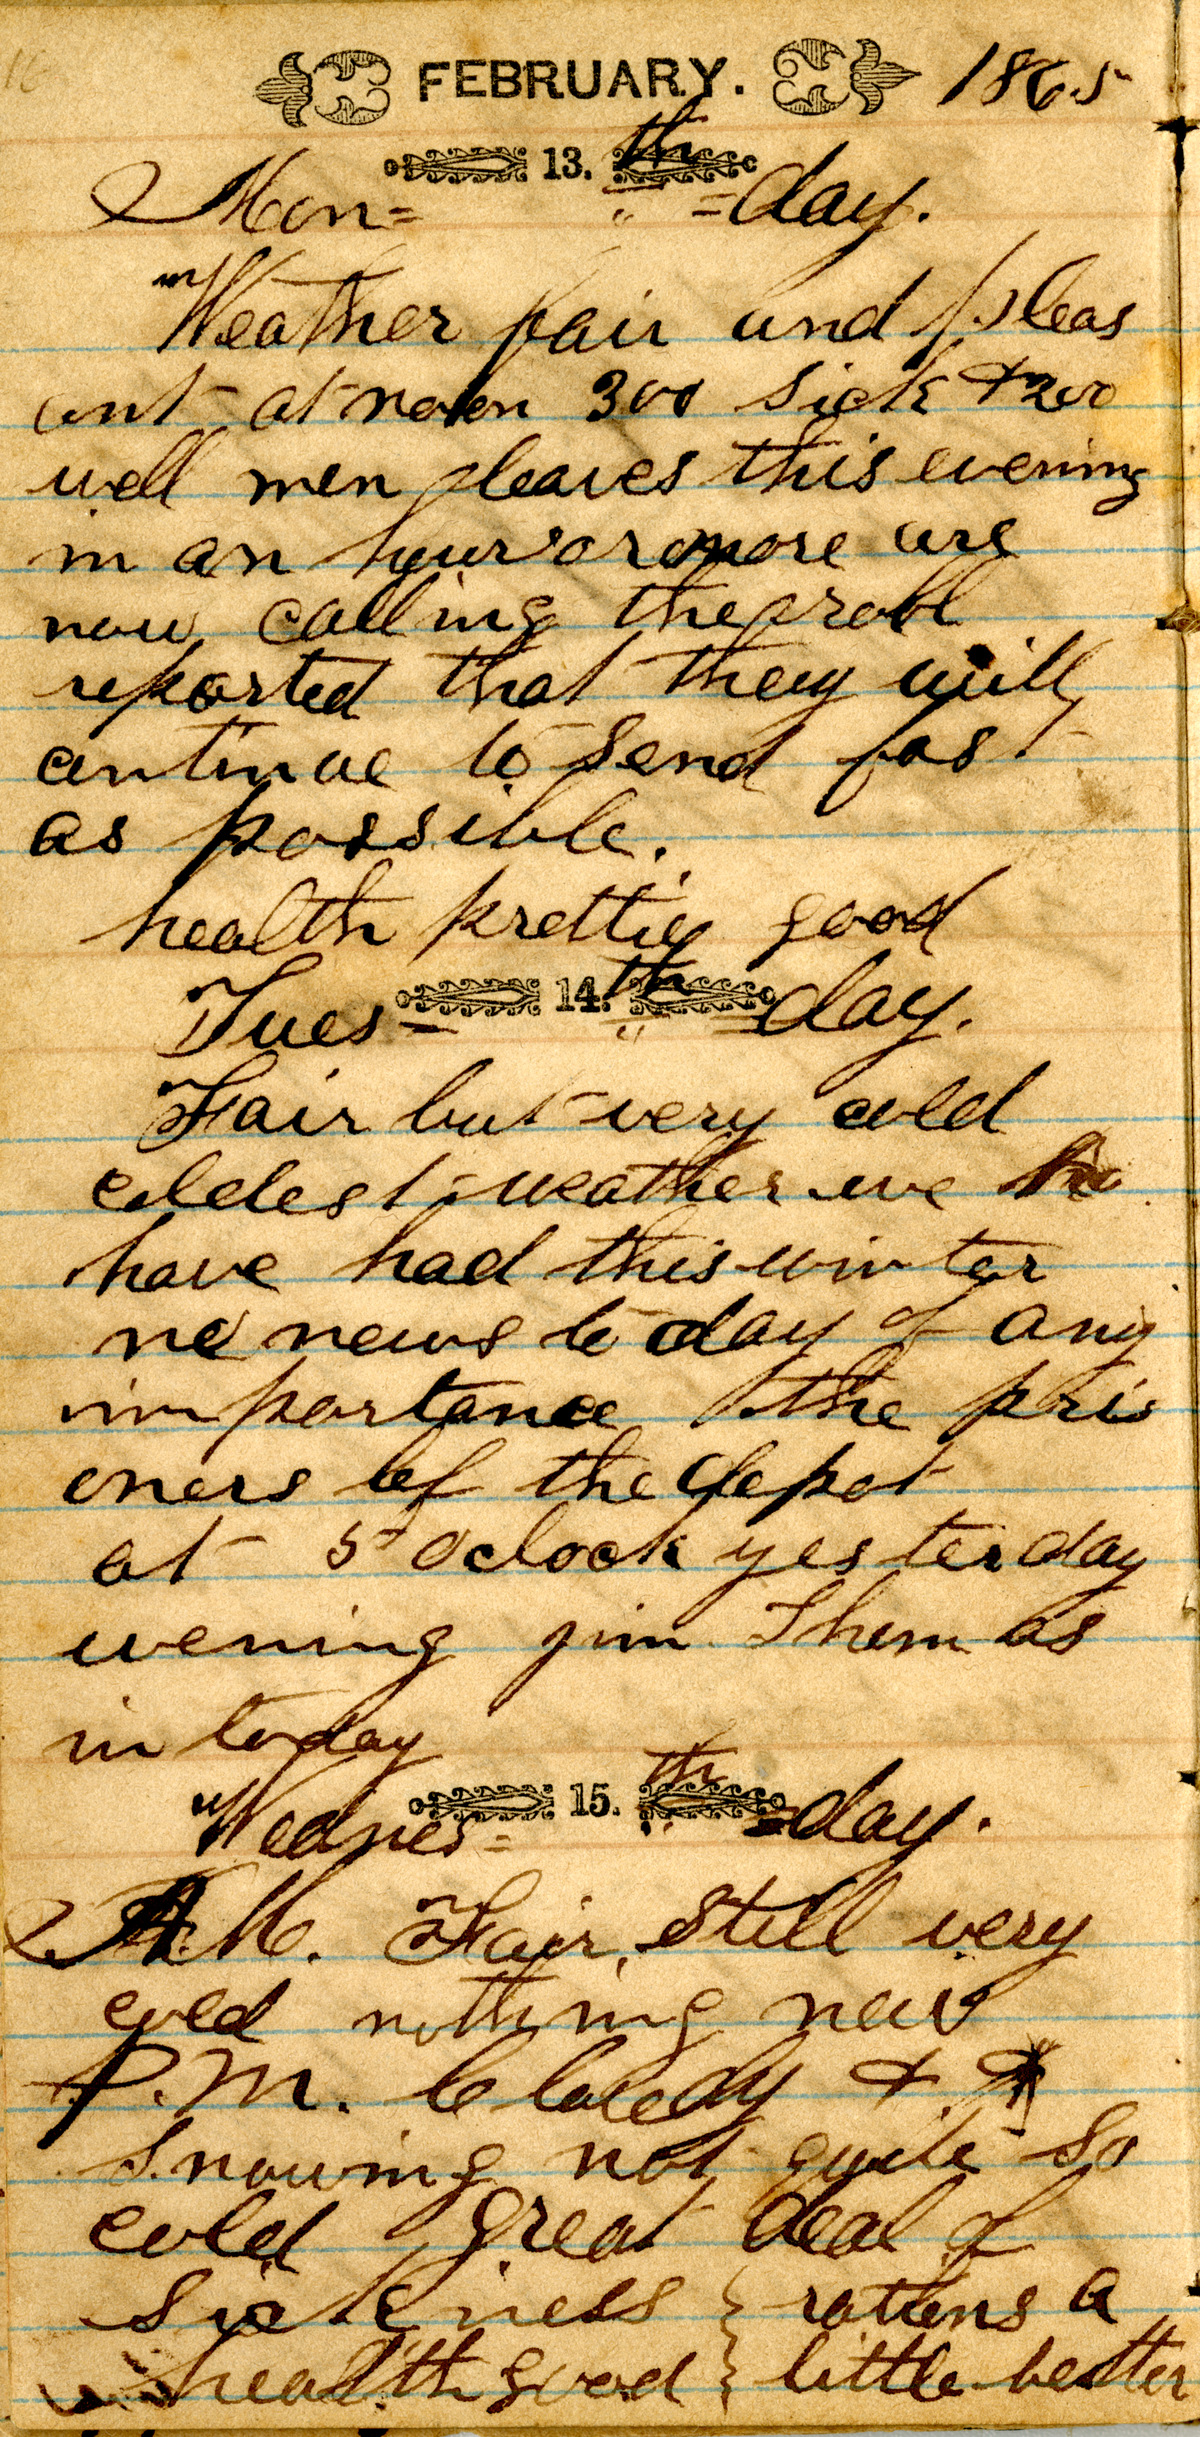 FEBRUARY. 1865
13. th
Mon= " =day.
Weather fair and pleas
ant at noon 300 sick & 200
well men leaves this evening
in an hour or more are
now calling the roll
reported that they will
continue to send fast
as possible.
health prettie good
14. th
Tues= " =day.
Fair but very cold
coldest weather we ha
have had this winter
no news to day of any
importance the pris
oners lef the depot
at 5 oclock yesterday
evening jim Thomas
in today
15. th
Wednes= " =day.
A.M. Fair, still very
cold nothing new
P.M. Cloudy &
snowing not quite so
cold great deal of
sickness } rations a
health good } little better